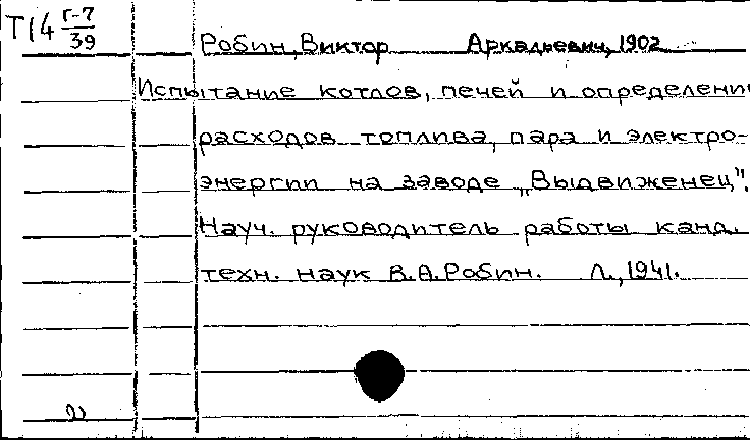 Т14 Г-7/39
Робин, Виктор Аркадьевич, 1902
Испытание котлов, печей и определени
расходов топлива, пара и электро-
энергии на заводе „Выдвиженец".
Науч. руководитель работы канд.
техн. наук В.А.Робин. Л., 1941.